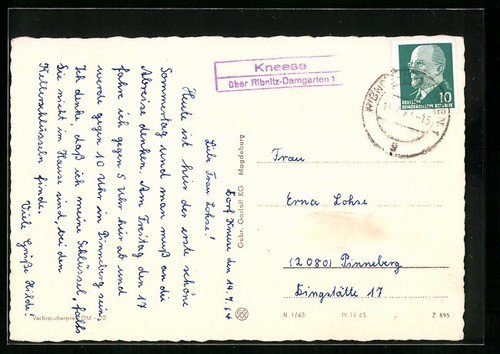 Kneese
über Ribnitz-Damgarten 1
10
DEUTSCHE
DEMOKRATISCHE REPUBLIK
Dorf Kneese den 14.7.64
Liebe Frau Lohse!
Heute ist hier der erste schöne
Sommertag und man muß an die
Abreise denken. Am Freitag den 17
fahre ich gegen 5 Uhr hier ab und
werde gegen 10 Uhr in Pinneberg sein.
Ich denke daß ich meine Schlüssel, falls
Sie nicht im Hause sind, bei den
Kellerschlüsseln finde.
Viele Grüße Hilde!
Gebr. Garloff KG Magdeburg
Frau
Erna Lohse
(2080) Pinneberg
Dingstätte 17
Verbraucherpreis DM
N 1/63
IV-14-45
Z 895